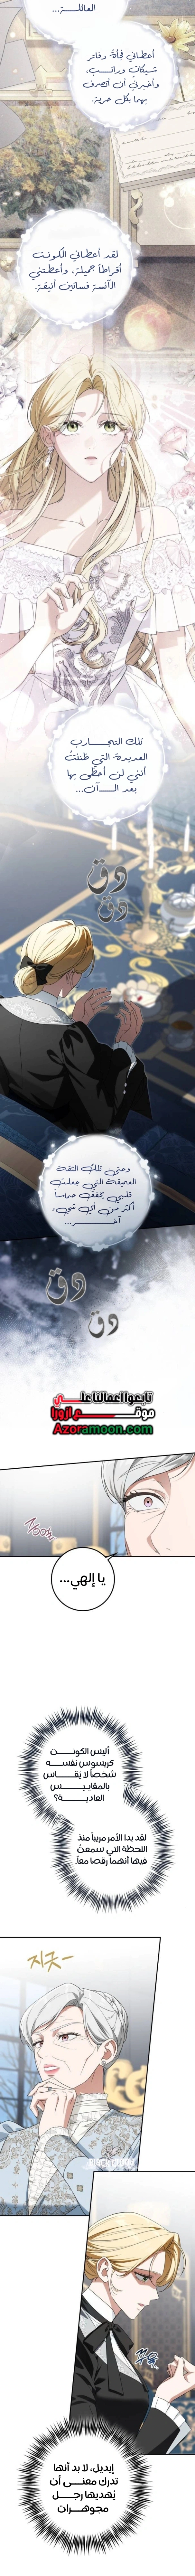 العائلـــة...
أعطاني فجأةً دفاتر
شيكات وراتـــــب،
وأخبرني أن أتصرف
بهما بكل حرية.
لقد أعطاني الكونت
أقراطًا جميلة، وأعطتني
الآنسة فساتين أنيقة.
تلك التجـــــارب
العديدة التي ظننتُ
أنني لن أحظى بها
بعد الـــــآن...
دق
دق
وحتى تلك الثقة
العميقة التي جعلت
قلبي يخفق حماساً
أكثر من أي شيء
آخــــر...
دق
دق
تابعوا اعمالنا علـــى
موقـــــــع ازورا
Azoramoon.com
يا إلهي...
أليس الكونـــــت
كريسوس نفســــه
شخصاً لا يُقـــاس
بالمقاييـــــــس
العاديـــــــة؟
لقد بدا الأمر مريباً منذ
اللحظة التي سمعتُ
فيها أنهما رقصا معاً.
지긋ー
إيديل، لا بد أنها
تدرك معنـــى أن
يُهديها رجــــل
مجوهـــرات